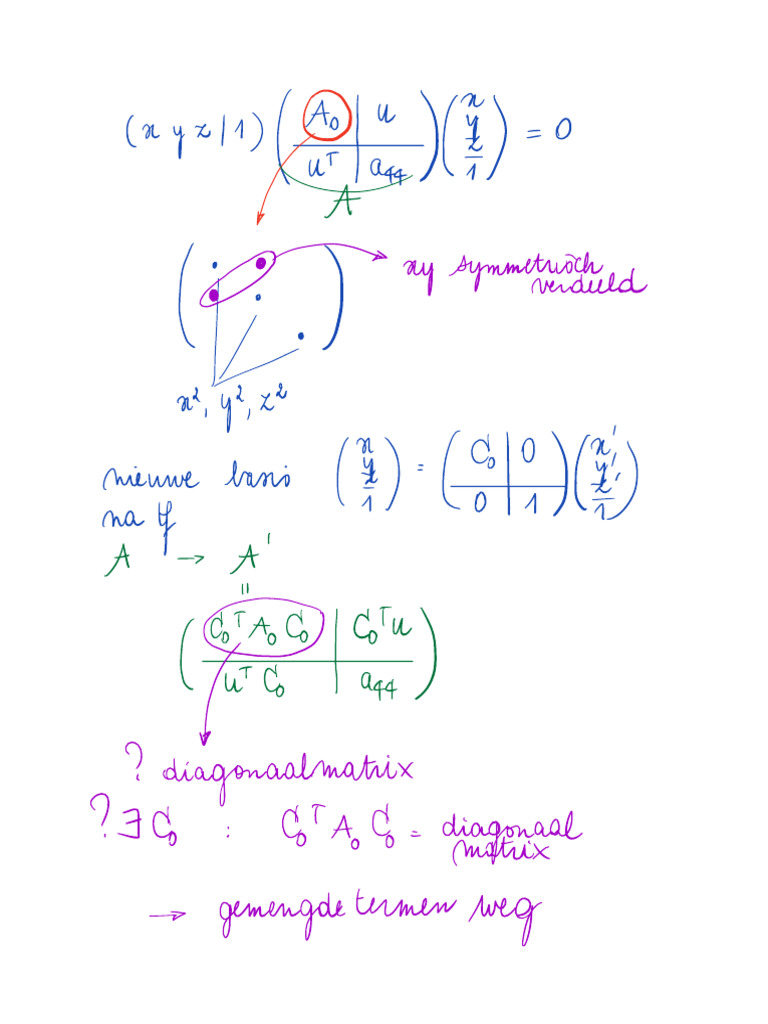 (x y z | 1) ( A₀ | u / uᵀ | a₄₄ ) ( x y z / 1 ) = 0
A
xy symmetrisch
verdeeld
x², y², z²
nieuwe basis ( x y z / 1 ) = ( C₀ | 0 / 0 | 1 ) ( x' y' z' / 1 )
na
A → A'
=
( C₀ᵀ A₀ C₀ | C₀ᵀ u / uᵀ C₀ | a₄₄ )
? diagonaalmatrix
? ∃ C₀ : C₀ᵀ A₀ C₀ = diagonaal
matrix
→ gemengde termen weg